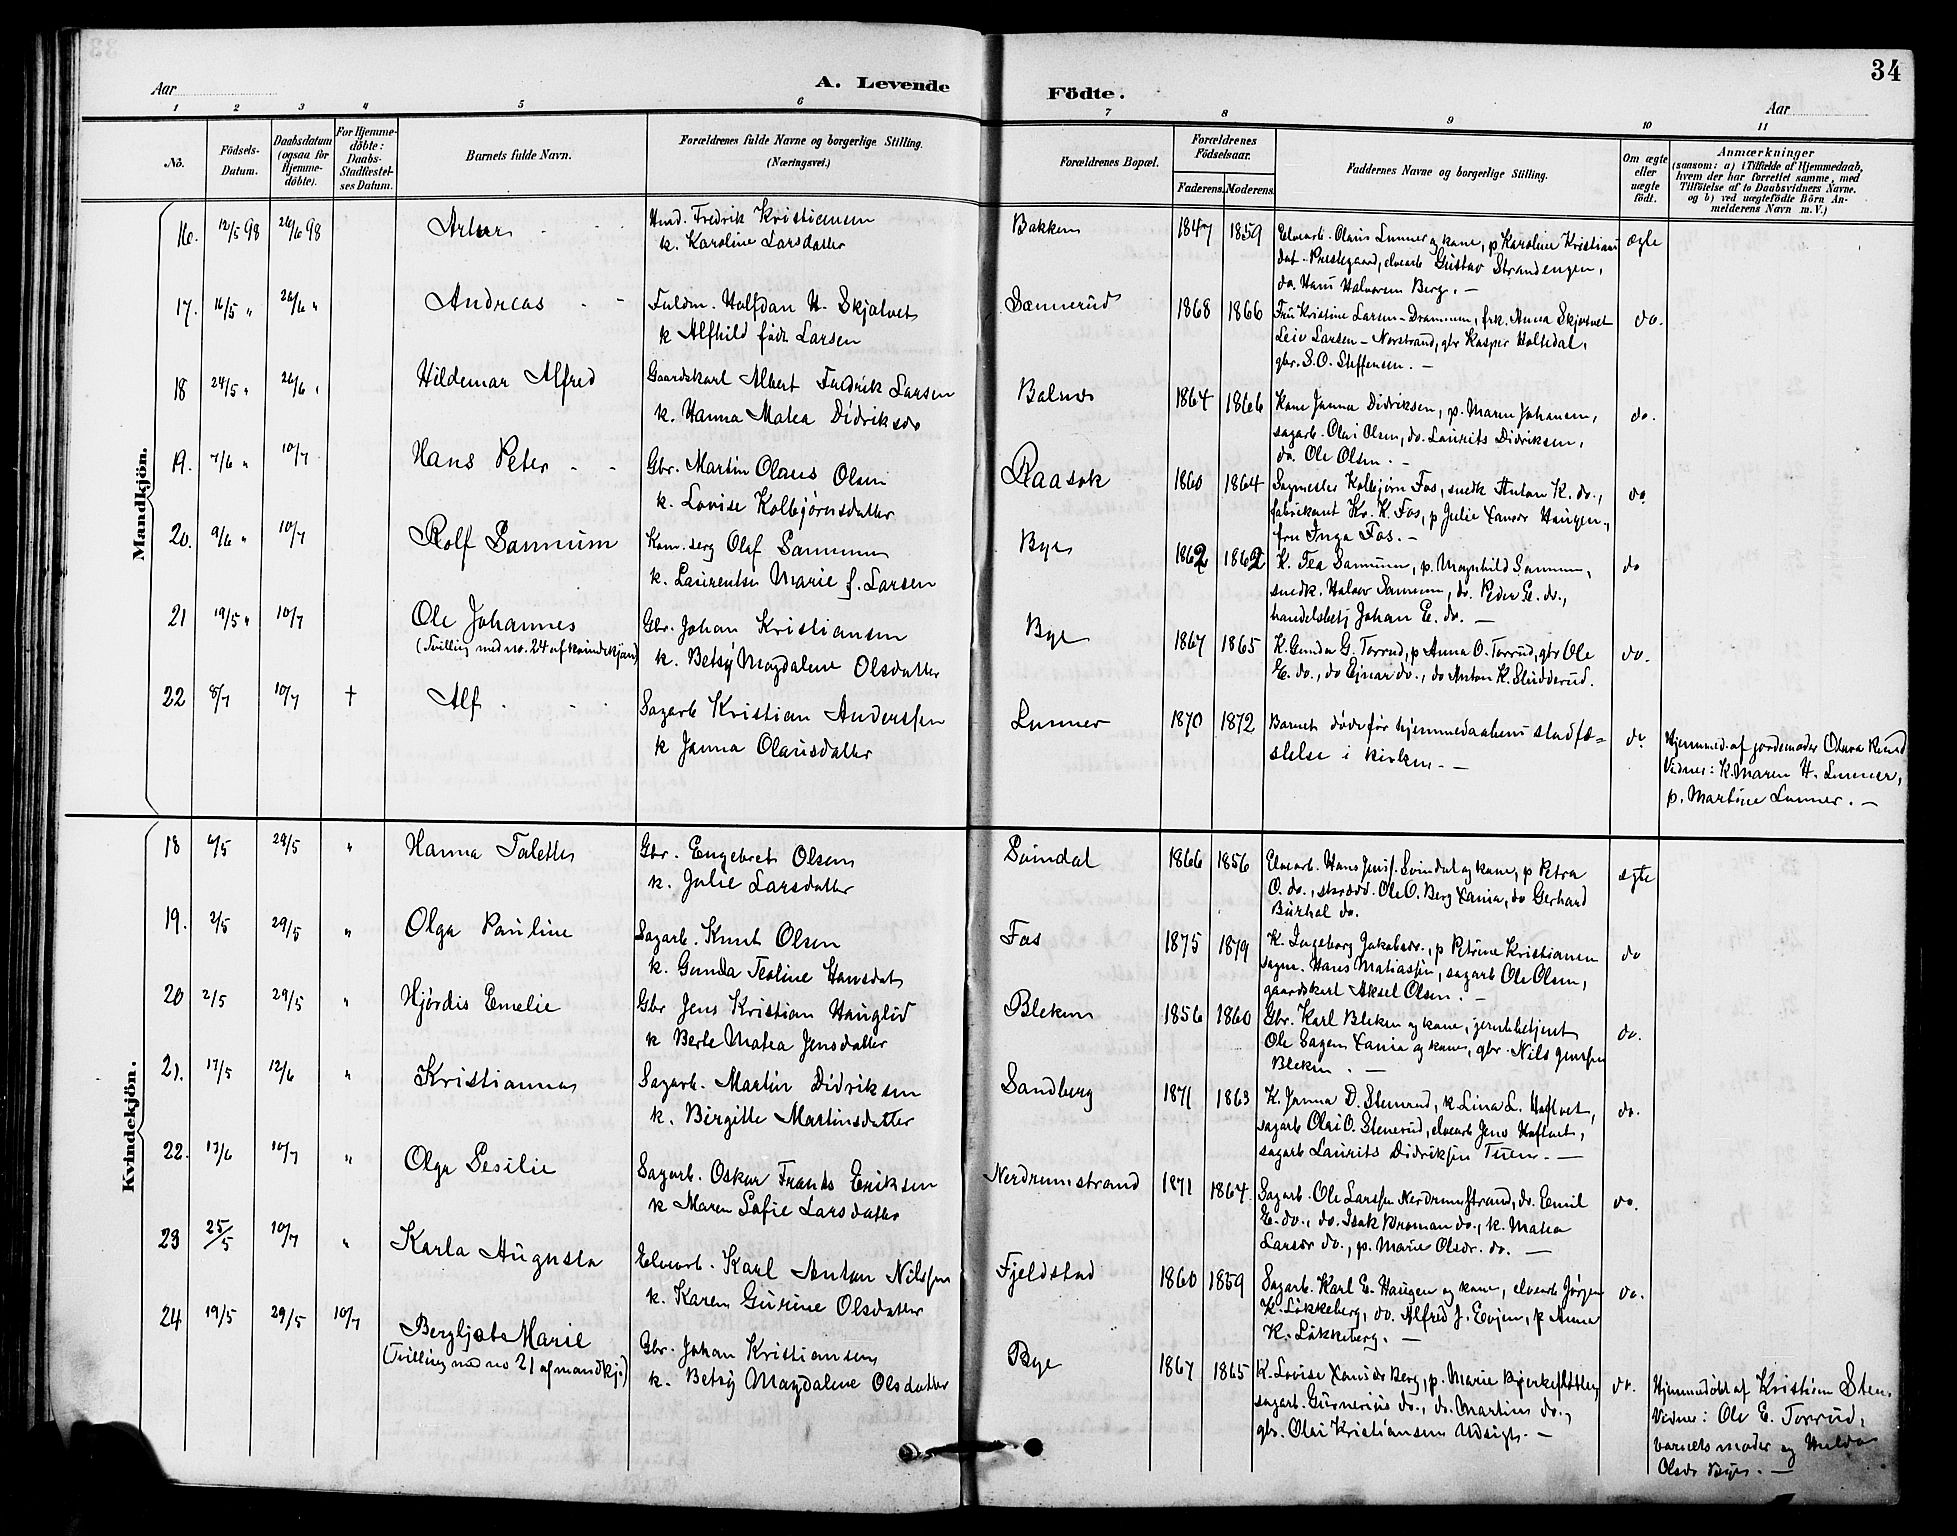 34
Aar
A. Levende Födte.
Aar
1 2 3 4 5 6 7 8 9 10 11
No.
Födsels-Datum.
Daabsdatum (ogsaa for Hjemme-döbte).
For Hjemme-döbte: Daabs-Stadfæstel-ses Datum.
Barnets fulde Navn.
Forældrenes fulde Navne og borgerlige Stilling.
(Næringsvei.)
Forældrenes Bopæl.
Forældrenes Födselsaar.
Faderens. Moderens.
Faddernes Navne og borgerlige Stilling.
Om ægte eller uægte födt.
Anmærkninger
(saasom: a) i Tilfælde af Hjemmedaab,
hvem der har forrettet samme, med
Tilföielse af to Daabsvidners Navne.
og b) ved uægtefödte Börn An-
melderens Navn m. V.)
Mandkjön.
16. 12/5 98 26/6 98 Arthur Fredrik Kristiansen
k. Karoline Larsdatter
Bakken 1847 1859 Elvearb. Olaus Lunner og kone, p Karoline Kristians
dat. Prestegaard, elvearb Gustav Strandengen,
do. Hans Halvorsen Berg. —
ægte
17. 16/5 " 26/6 " Andreas Fuldm. Halfdan H. Skjølvet
k Alfhild født Larsen
Sannerud 1868 1866 Fru Kristine Larsen - Drammen, frk. Anna Skjølvet
Leiv Larsen - Norstrand, gbr Kasper Holtedal,
gbr. S. O. Steffensen. —
do.
18 24/5 " 26/6 " Hildemar Alfred Gaardskarl Albert Fredrik Larsen
k. Hanna Matea Didriksdr
Balnes 1864 1866 Kone Janna Didriksen, p. Maren Johansen,
sagarb. Olai Olsen, do. Laurits Didriksen,
do. Ole Olsen. —
do.
19. 7/6 " 10/7 Hans Peter Gbr. Martin Olaus Olsen
k. Lovise Kolbjørnsdatter
Raasok 1860 1864 Sagmester Kolbjørn Fos, snedk Anton K. do.,
fabrikant Kr. K. Fos, p Julie Haugen,
fru Inga Fos. —
do.
20. 9/6 " 10/7 Rolf Sannum Olaf Sannum
k. Laurentse Marie f. Larsen
Bye 1862 1862 K. Tea Sannum, p. Magnhild Sannum,
snedk. Halvor Sannum, do. Peder E. do.,
handelsbetj Johan E. do. —
do
21 19/5 " 10/7 Ole Johannes
(Tvilling med no. 24 af kvindekjøn)
Gbr. Johan Kristiansen
k. Betsy Magdalene Olsdatter
Bye 1867 1865 K. Gunda G. Torrud, p Anna O. Torrud, gbr Ole
E. do., do Ejnar do., do Anton K. Sludderud.
do.
22 8/7 10/7 † Alf Sagarb Kristian Anderssen
k Janna Olausdatter
Lunner 1870 1872 Barnet døde før hjemmedaabens stadfæ=
stelse i kirken. —
do. Hjemmed. af jordemoder
Vidner: K. Maren H. Lunner,
p. Martine Lunner. —
Kvindekjön.
18 6/5 29/5 " Hanna Talette Gbr. Engebret Olsen
k. Julie Larsdatter
Svindal 1866 1856 Elvearb. Hans Jensf. Svindal og kone, p Petra
O. do., skrædd. Ole O. Berg Xania, do Gerhard
Burhol do.
ægte
19. 2/5 29/5 " Olga Pauline Sagarb. Knut Olsen
k. Gunda Teoline Hansdat
Fos 1875 1879 K. Ingeborg Jakobsdr., p Petrine Kristiansen
sagm. Hans Matiassen, sagarb Ole Olsen,
gaardskarl Aksel Olsen. —
do
20 2/5 29/5 " Hjørdis Emelie Gbr Jens Kristian Hauglid
k Berte Matea Jensdatter
Bleken 1856 1860 Gbr. Karl Bleken og kone, jernbbetjent
Ole Sagen Xania og kone, gbr. Nils Jenssen
Bleken. —
do.
21. 17/5 12/6 " Kristianna Sagarb. Martin Didriksen
k. Birgitte Martinsdatter
Sandberg 1871 1863 K. Janna D. Stenerud, k Lina L. Haftvet,
sagarb Olai O. Stenerud, elvearb Jens Haftvet,
sagarb Laurits Didriksen Tuen. —
do.
22. 13/6 10/7 " Olga Sesilie Sagarb. Oskar Frants Eriksen
k Maren Sofie Larsdatter
Nerdrumstrand 1871 1864 Sagarb. Ole Larssen Nerdrumstrand, do. Emil
E. do., do. Isak Broman do., k. Matea
Larsdr do., p. Marie Olsdr. do. —
do.
23 25/5 10/7 " Karla Augusta Elvearb. Karl Anton Nilssen
k. Karen Gurine Olsdatter
Fjeldstad 1860 1859 Sagarb. Karl E. Haugen og kone, elvearb Jørgen
K. Løkkeberg, do. Alfred J. Evjen, p Anna
K. Løkkeberg. —
do.
24 19/5 29/5 10/7 Bergljot Marie
(Tvilling med no 21 af mandkj.)
Gbr. Johan Kristiansen
k. Betsy Magdalene Olsdatter
Bye 1867 1865 K. Lovise Berg, p. Marie
sagarb. Gunnerius do., do. Martin do.,
gbr. Olai Kristiansen Udsigt. —
do. Hjemmedøbt af Kristian
Vidner: Ole E. Torrud,
barnets moder og Hulda
Olsdr Bye. —